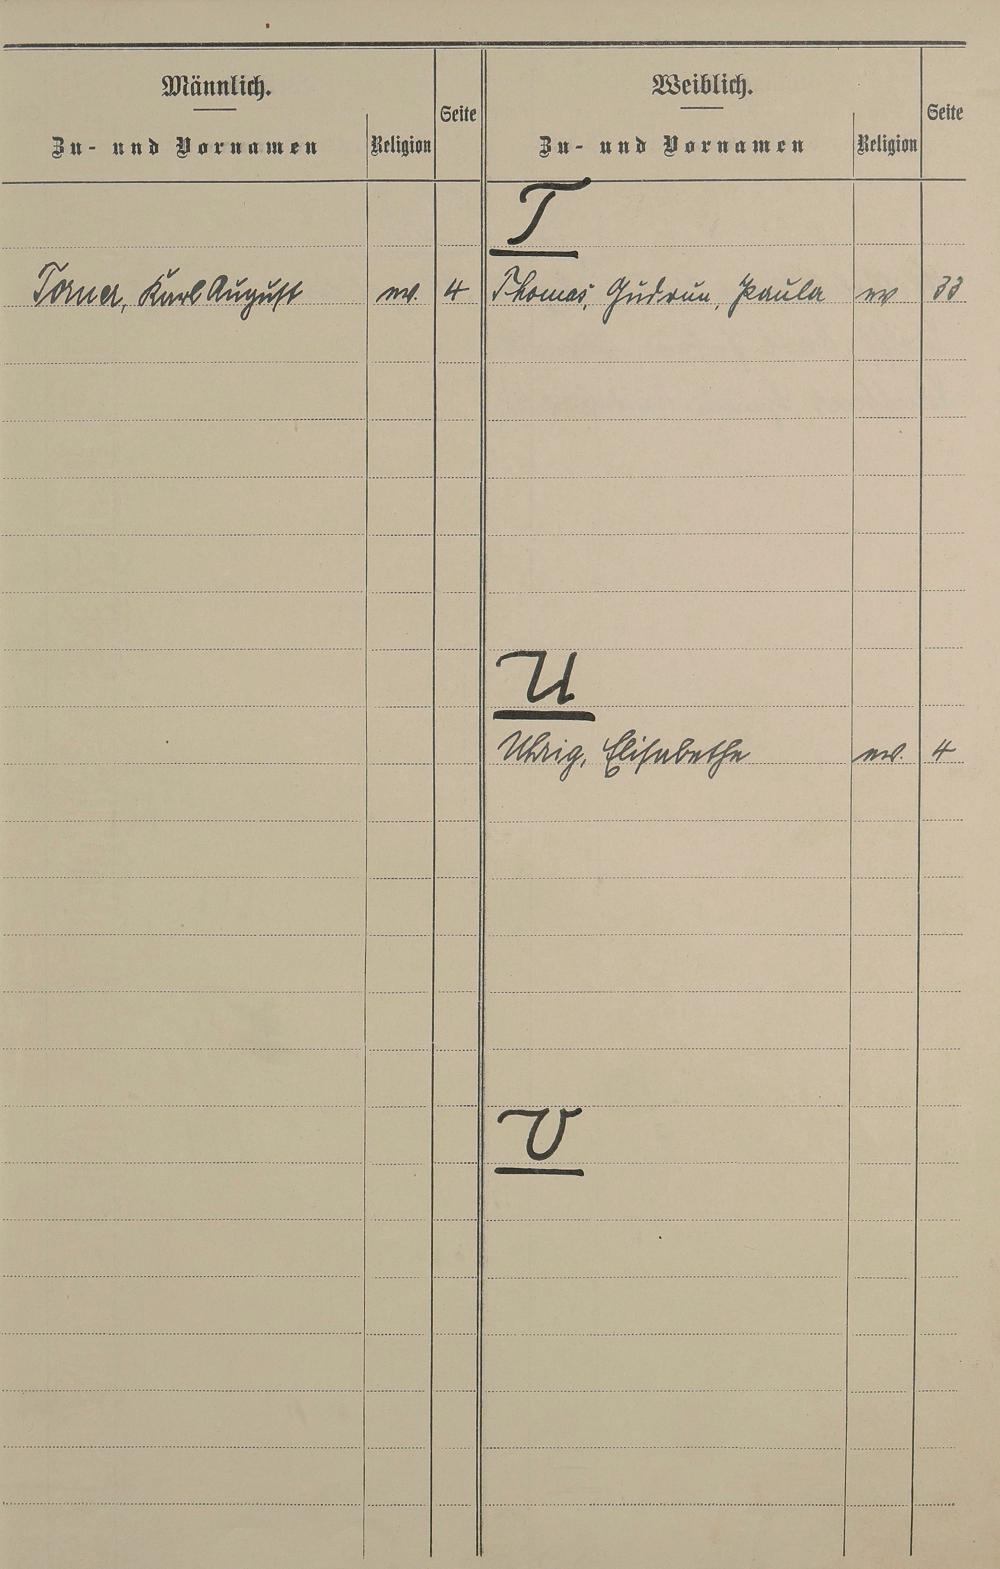 Männlich.
Zu- und Vornamen
Religion
Seite
Weiblich.
Zu- und Vornamen
Religion
Seite
T
Karl August ev. 4
Thomas, Gudrun, Paula ev 33
U
Uhrig, Elisabethe ev. 4
V